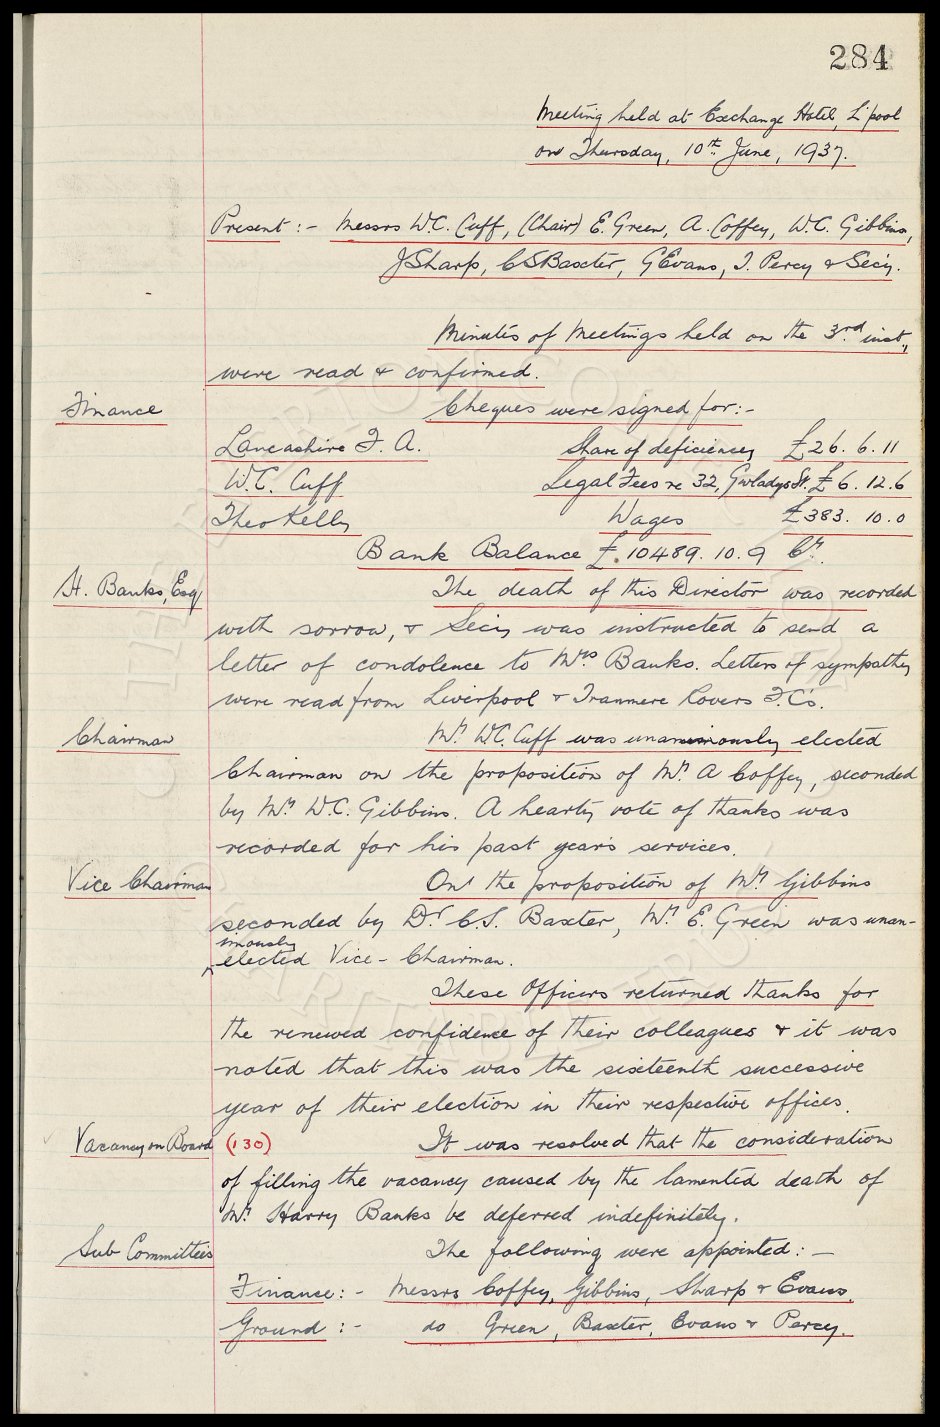 284
Meeting held at Exchange Hotel, L'pool
on Thursday, 10th June, 1937.
Present :- Messrs W.C. Cuff, (Chair) E. Green, A. Coffey, W.C. Gibbins,
J Sharp, C S Baxter, G Evans, J. Percy & Secy.
Minutes of Meetings held on the 3rd inst.,
were read & confirmed.
Finance
Cheques were signed for:-
Lancashire F. A. Share of deficiency £26. 6. 11
W.C. Cuff Legal Fees re 32, Gwladys St. £6. 12. 6
Theo Kelly Wages £383. 10. 0
Bank Balance £10489. 10. 9 Cr.
H. Banks, Esq
The death of this Director was recorded
with sorrow, & Secy was instructed to send a
letter of condolence to Mrs Banks. Letters of sympathy
were read from Liverpool & Tranmere Rovers F.C's.
Chairman
Mr. W.C. Cuff was unanimously elected
Chairman on the proposition of Mr. A Coffey, seconded
by Mr. W.C. Gibbins. A hearty vote of thanks was
recorded for his past year's services.
Vice Chairman
On the proposition of Mr. Gibbins
seconded by Dr C.S. Baxter, Mr. E. Green was unan-
imously
elected Vice-Chairman.
These Officers returned thanks for
the renewed confidence of their colleagues & it was
noted that this was the sixteenth successive
year of their election in their respective offices.
Vacancy on Board (130) It was resolved that the consideration
of filling the vacancy caused by the lamented death of
Mr. Harry Banks be deferred indefinitely.
Sub Committees
The following were appointed:-
Finance:- Messrs Coffey, Gibbins, Sharp & Evans.
Ground:- do Green, Baxter, Evans & Percy.